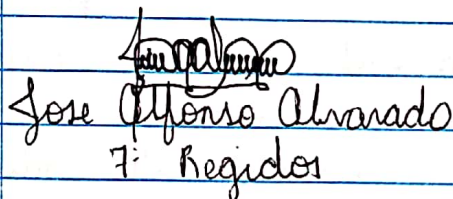 Jose Alfonso Alvarado
7: Regidor